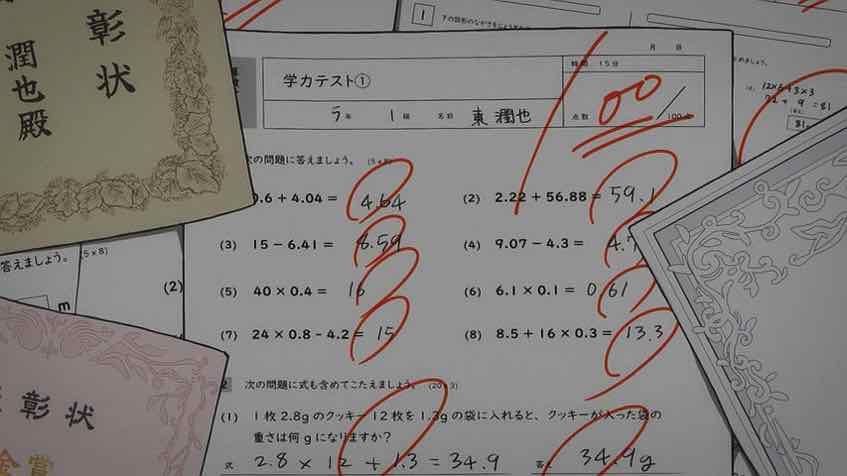 彰状
潤也殿
1 下の図形の
(5×8)
(2)
m
答えましょう。
彰状
金賞
月 日
学力テスト① 時間 15分
5年 1組 名前 東潤也 点数 100/100点
次の問題に答えましょう。 (5×8)
0.6+4.04= 4.64 (2) 2.22+56.88= 59.1
(3) 15-6.41= 8.59 (4) 9.07-4.3= 4.7
(5) 40×0.4= 16 (6) 6.1×0.1= 0.61
(7) 24×0.8-4.2= 15 (8) 8.5+16×0.3= 13.3
2 次の問題に式も含めてこたえましょう。 (20×3)
(1) 1枚2.8gのクッキー12枚を1.3gの袋に入れると、クッキーが入った袋の
重さは何gになりますか?
式 2.8×12+1.3=34.9 答え 34.9g